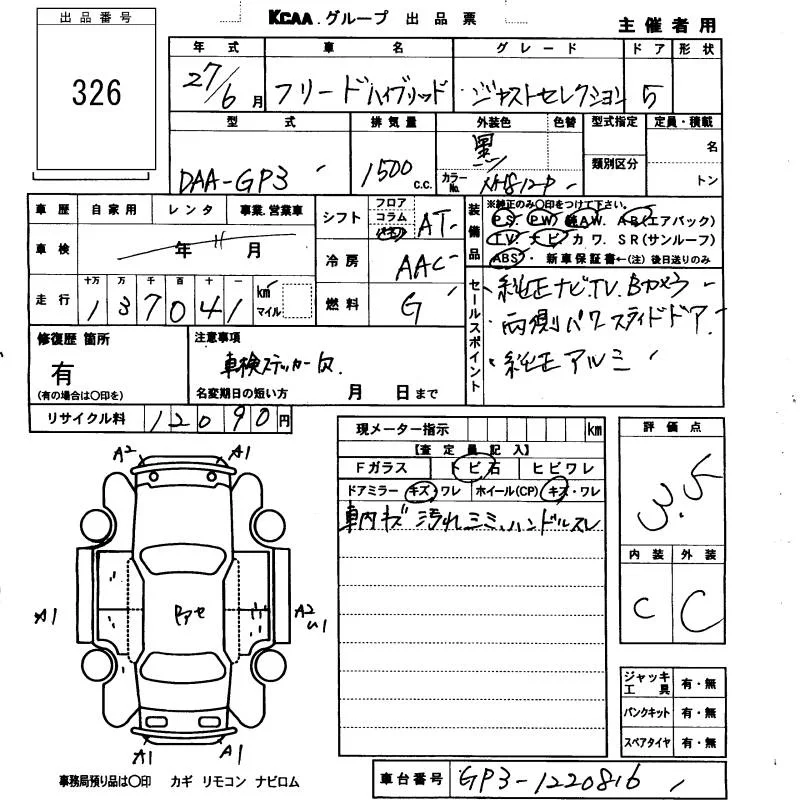 出品番号
326
KCAA.グループ 出品票
主催者用
年式 車名 グレード ドア 形状
27/6月 フリードハイブリッド ジャストセレクション 5
型式 排気量 外装色 色替 型式指定 定員・積載
DAA-GP3 1500 c.c. 黒 カラーNo. 類別区分 名 トン
車歴 自家用 レンタ 事業.営業車
車検 年 月
走行 十万 万 千 百 十 一
137041 km マイル
シフト フロア コラム AT
冷房 AAC
燃料 G
装備品 ※純正のみ〇印をつけて下さい。
PS. PW. 純AW. AB(エアバック)
TV. ナビ カワ. SR(サンルーフ)
ABS・ 新車保証書←(注) 後日送りのみ
セールスポイント
純正ナビ.TV.Bカメラ
両側パワースライドドア.
純正アルミ
修復歴 箇所
有
(有の場合は〇印を)
注意事項
車検ステッカー
名変期日の短い方 月 日まで
リサイクル料 12090円
現メーター指示 km
【査定員記入】
Fガラス トビ石 ヒビワレ
ドアミラー キズ・ワレ ホイール(CP) キズ・ワレ
車内キズ 汚れ シミ、ハンドルスレ
評価点
3.5
内装 外装
C C
A2 A1
A1 A2
A1 A1
ジャッキ工具 有・無
パンクキット 有・無
スペアタイヤ 有・無
事務局預り品は〇印 カギ リモコン ナビロム
車台番号 GP3-1220816